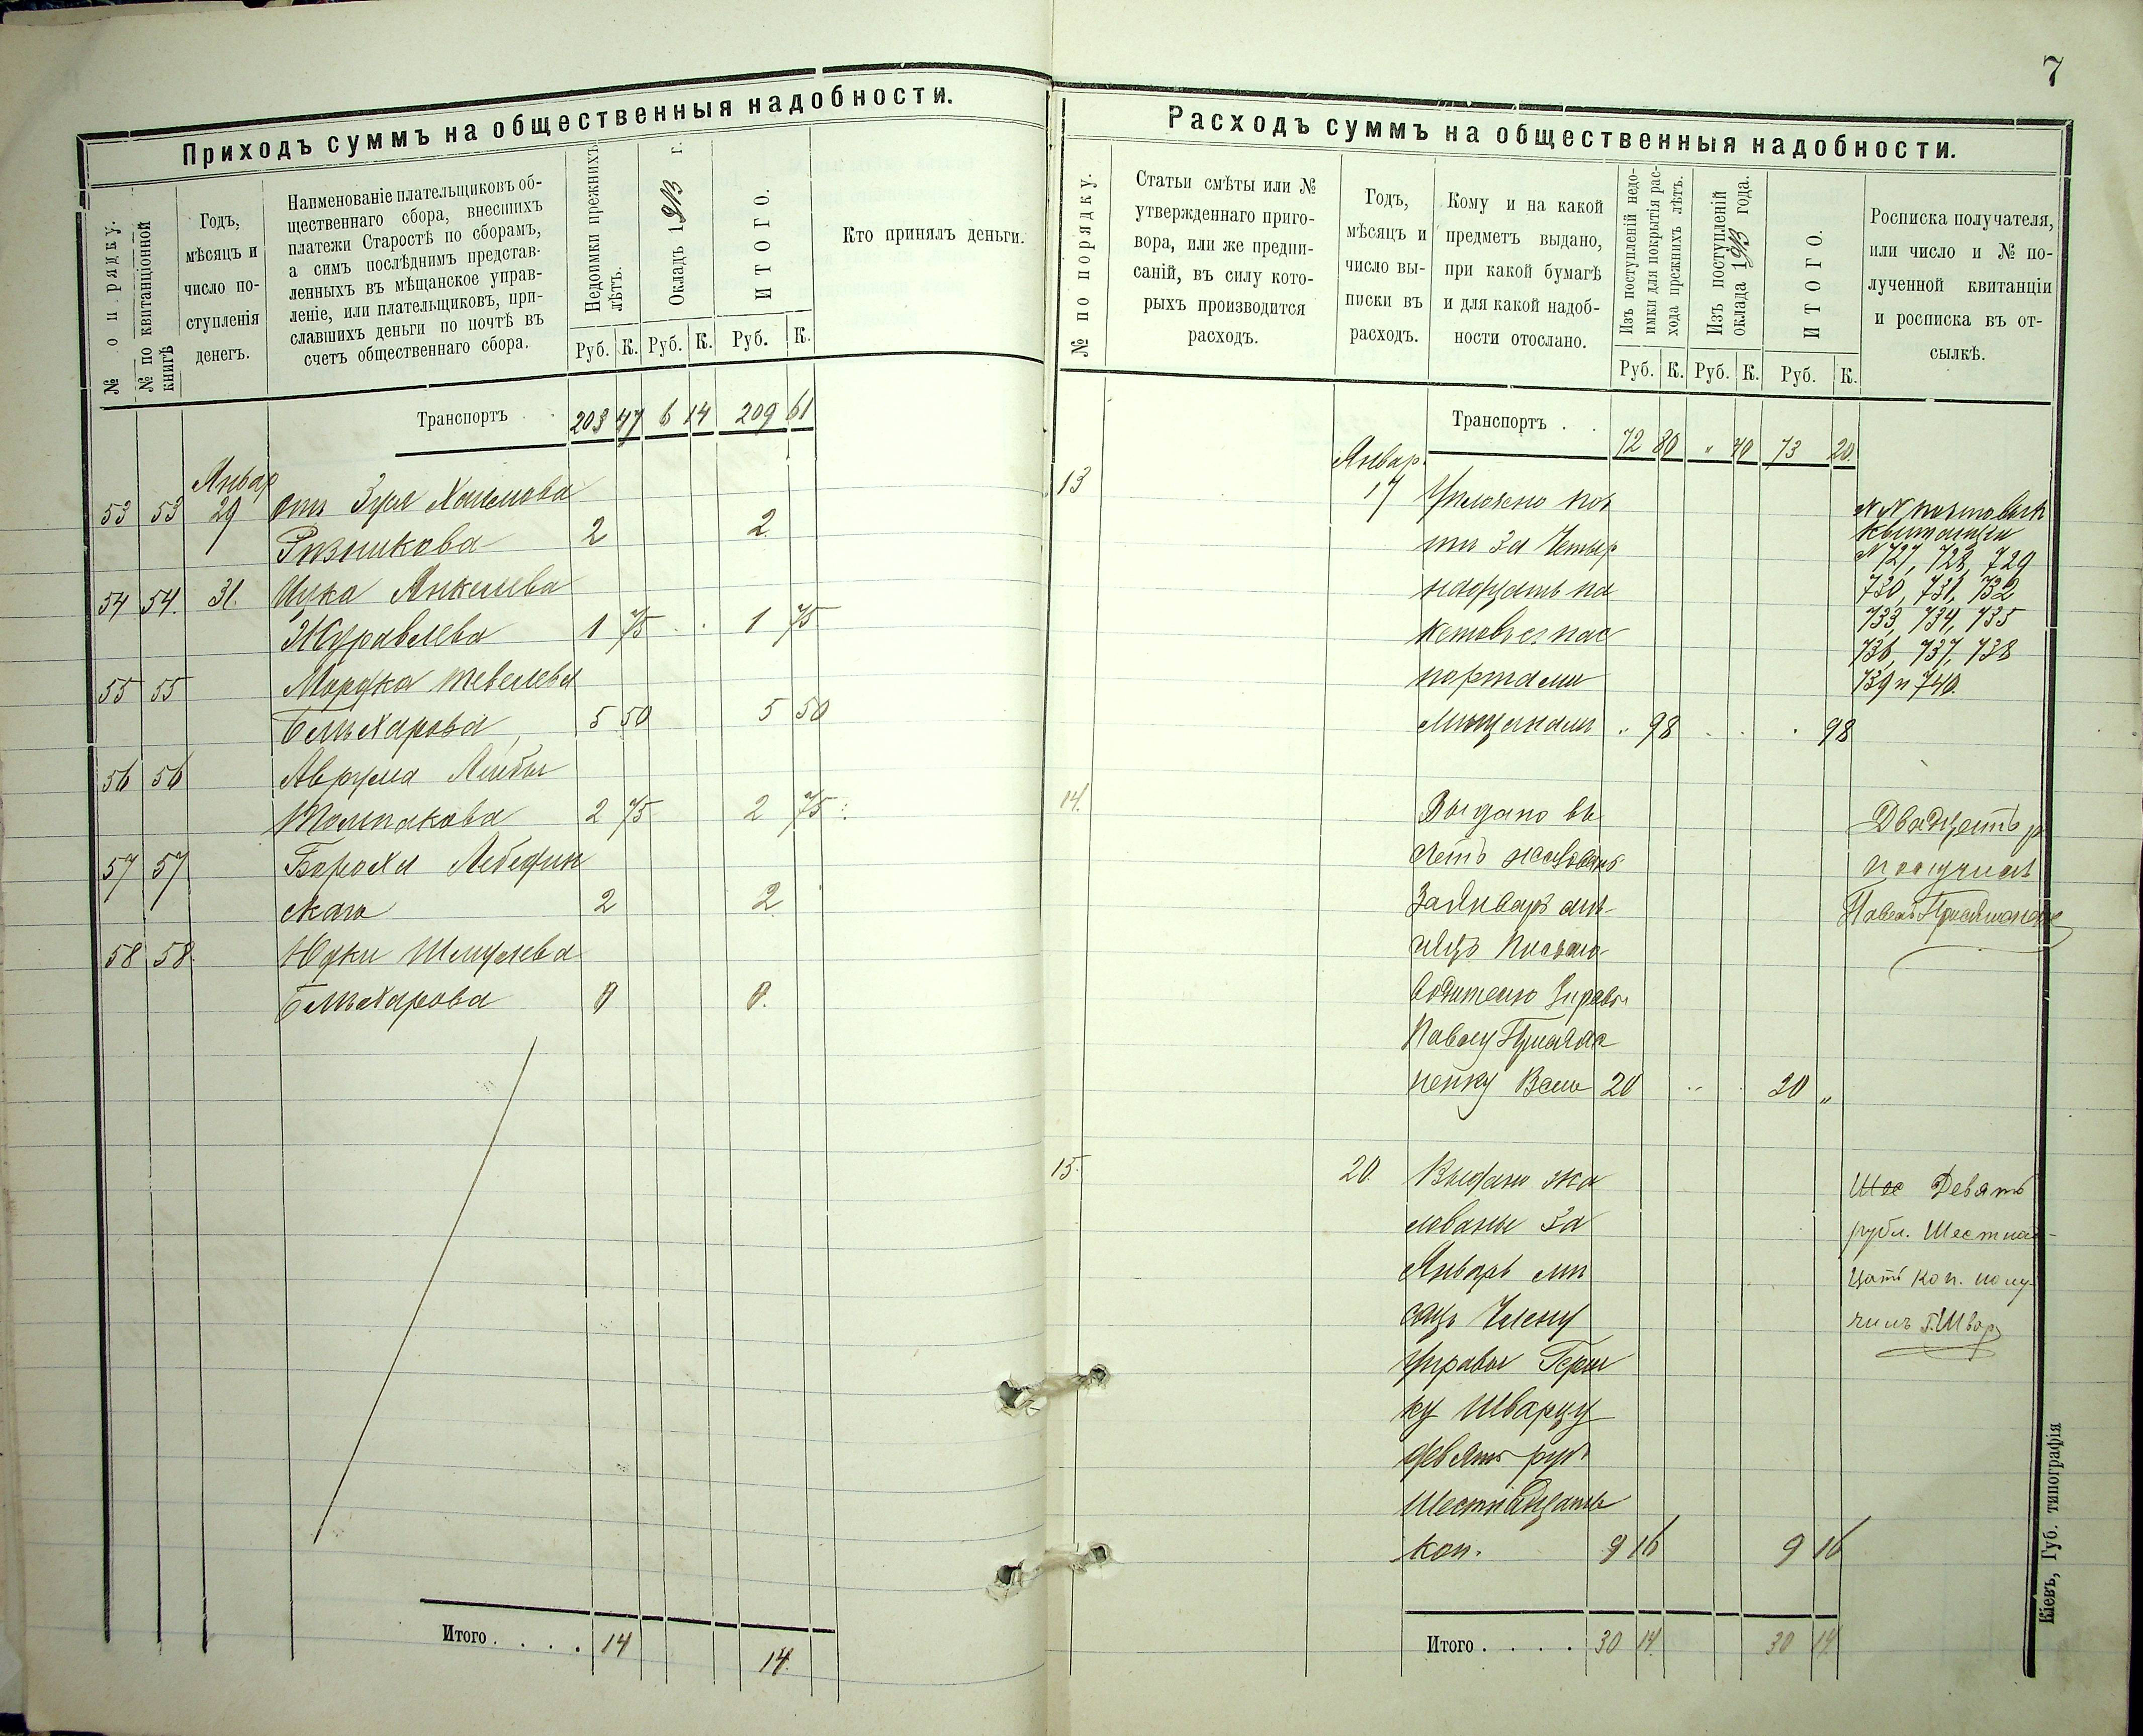 7
Приходъ суммъ на общественныя надобности.
№ по порядку.
№ по квитанціонной
книгѣ
Годъ,
мѣсяцъ и
число по-
ступленія
денегъ.
Наименованіе плательщиковъ об-
щественнаго сбора, внесшихъ
платежи Старостѣ по сборамъ,
а симъ послѣднимъ представ-
ленныхъ въ мѣщанское управ-
леніе, или плательщиковъ, при-
славшихъ деньги по почтѣ въ
счетъ общественнаго сбора.
Недоимки прежнихъ
лѣтъ.
Окладъ 1913 г.
ИТОГО.
Кто принялъ деньги.
Руб. К. Руб. К. Руб. К.
Транспортъ 203 47 6 14 209 61
Январ
53 53 29 отъ Зуся Хаимова
Рѣзникова 2 2
54 54. 31. Ицка Янкелева
Журавлева 1 75 1 75
55 55 Мордка Тевелева
Бельхарова 5 50 5 50
56 56 Аврума Лейбы
Толпакова 2 75 2 75
57 57 Бороха Лебедин
скаго 2 2
58 58 Юдки Шмулева
Бельхарова
Итого . . . . 14 14.
Расходъ суммъ на общественныя надобности.
№ по порядку.
Статьи смѣты или №
утвержденнаго приго-
вора, или же предпи-
саній, въ силу кото-
рыхъ производится
расходъ.
Годъ,
мѣсяцъ и
число вы-
писки въ
расходъ.
Кому и на какой
предметъ выдано,
при какой бумагѣ
и для какой надоб-
ности отослано.
Изъ поступленій недо-
имки для покрытія рас-
хода прежнихъ лѣтъ.
Изъ поступленій
оклада 1913 года.
ИТОГО.
Росписка получателя,
или число и № по-
лученной квитанціи
и росписка въ от-
сылкѣ.
Руб. К. Руб. К. Руб. К.
Транспортъ . . 72 80 " 40 73 20.
Январ.
13 17 Уплочено поч
ти за Четыр
надцать па
кетовъ съ пас
портами
мѣщанамъ " 98 98
№№ почтовых
квитанции
№ 727, 728, 729
730, 731, 732
733, 734, 735
736, 737, 738
739 и 740.
14. Выдано въ
счетъ жалованя
за Январъ мѣ-
сяцъ Письмо-
водителю Управы
Павлу
ненку Всего 20 20 "
Двадцать р
получилъ
Павелъ
15. 20. Выдано жа
лованье за
Январь мѣ
сяцъ Члену
Управы Герш
ку Шварцу
девять руб
шестнадцать
коп. 9 16 9 16
Шес Девять
рубл. Шестнад-
цать коп. полу-
чилъ Г. Швар
Итого . . . . 30 14. 30 14.
Кіевъ, Губ. типографія